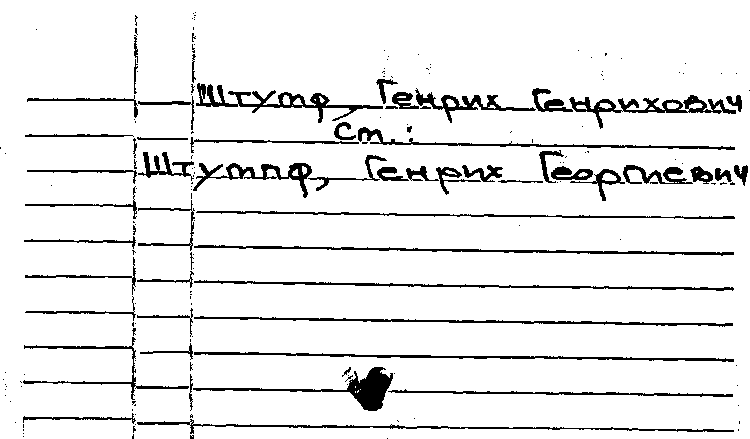 Штумф, Генрих Генрихович
См.:
Штумпф, Генрих Георгиевич